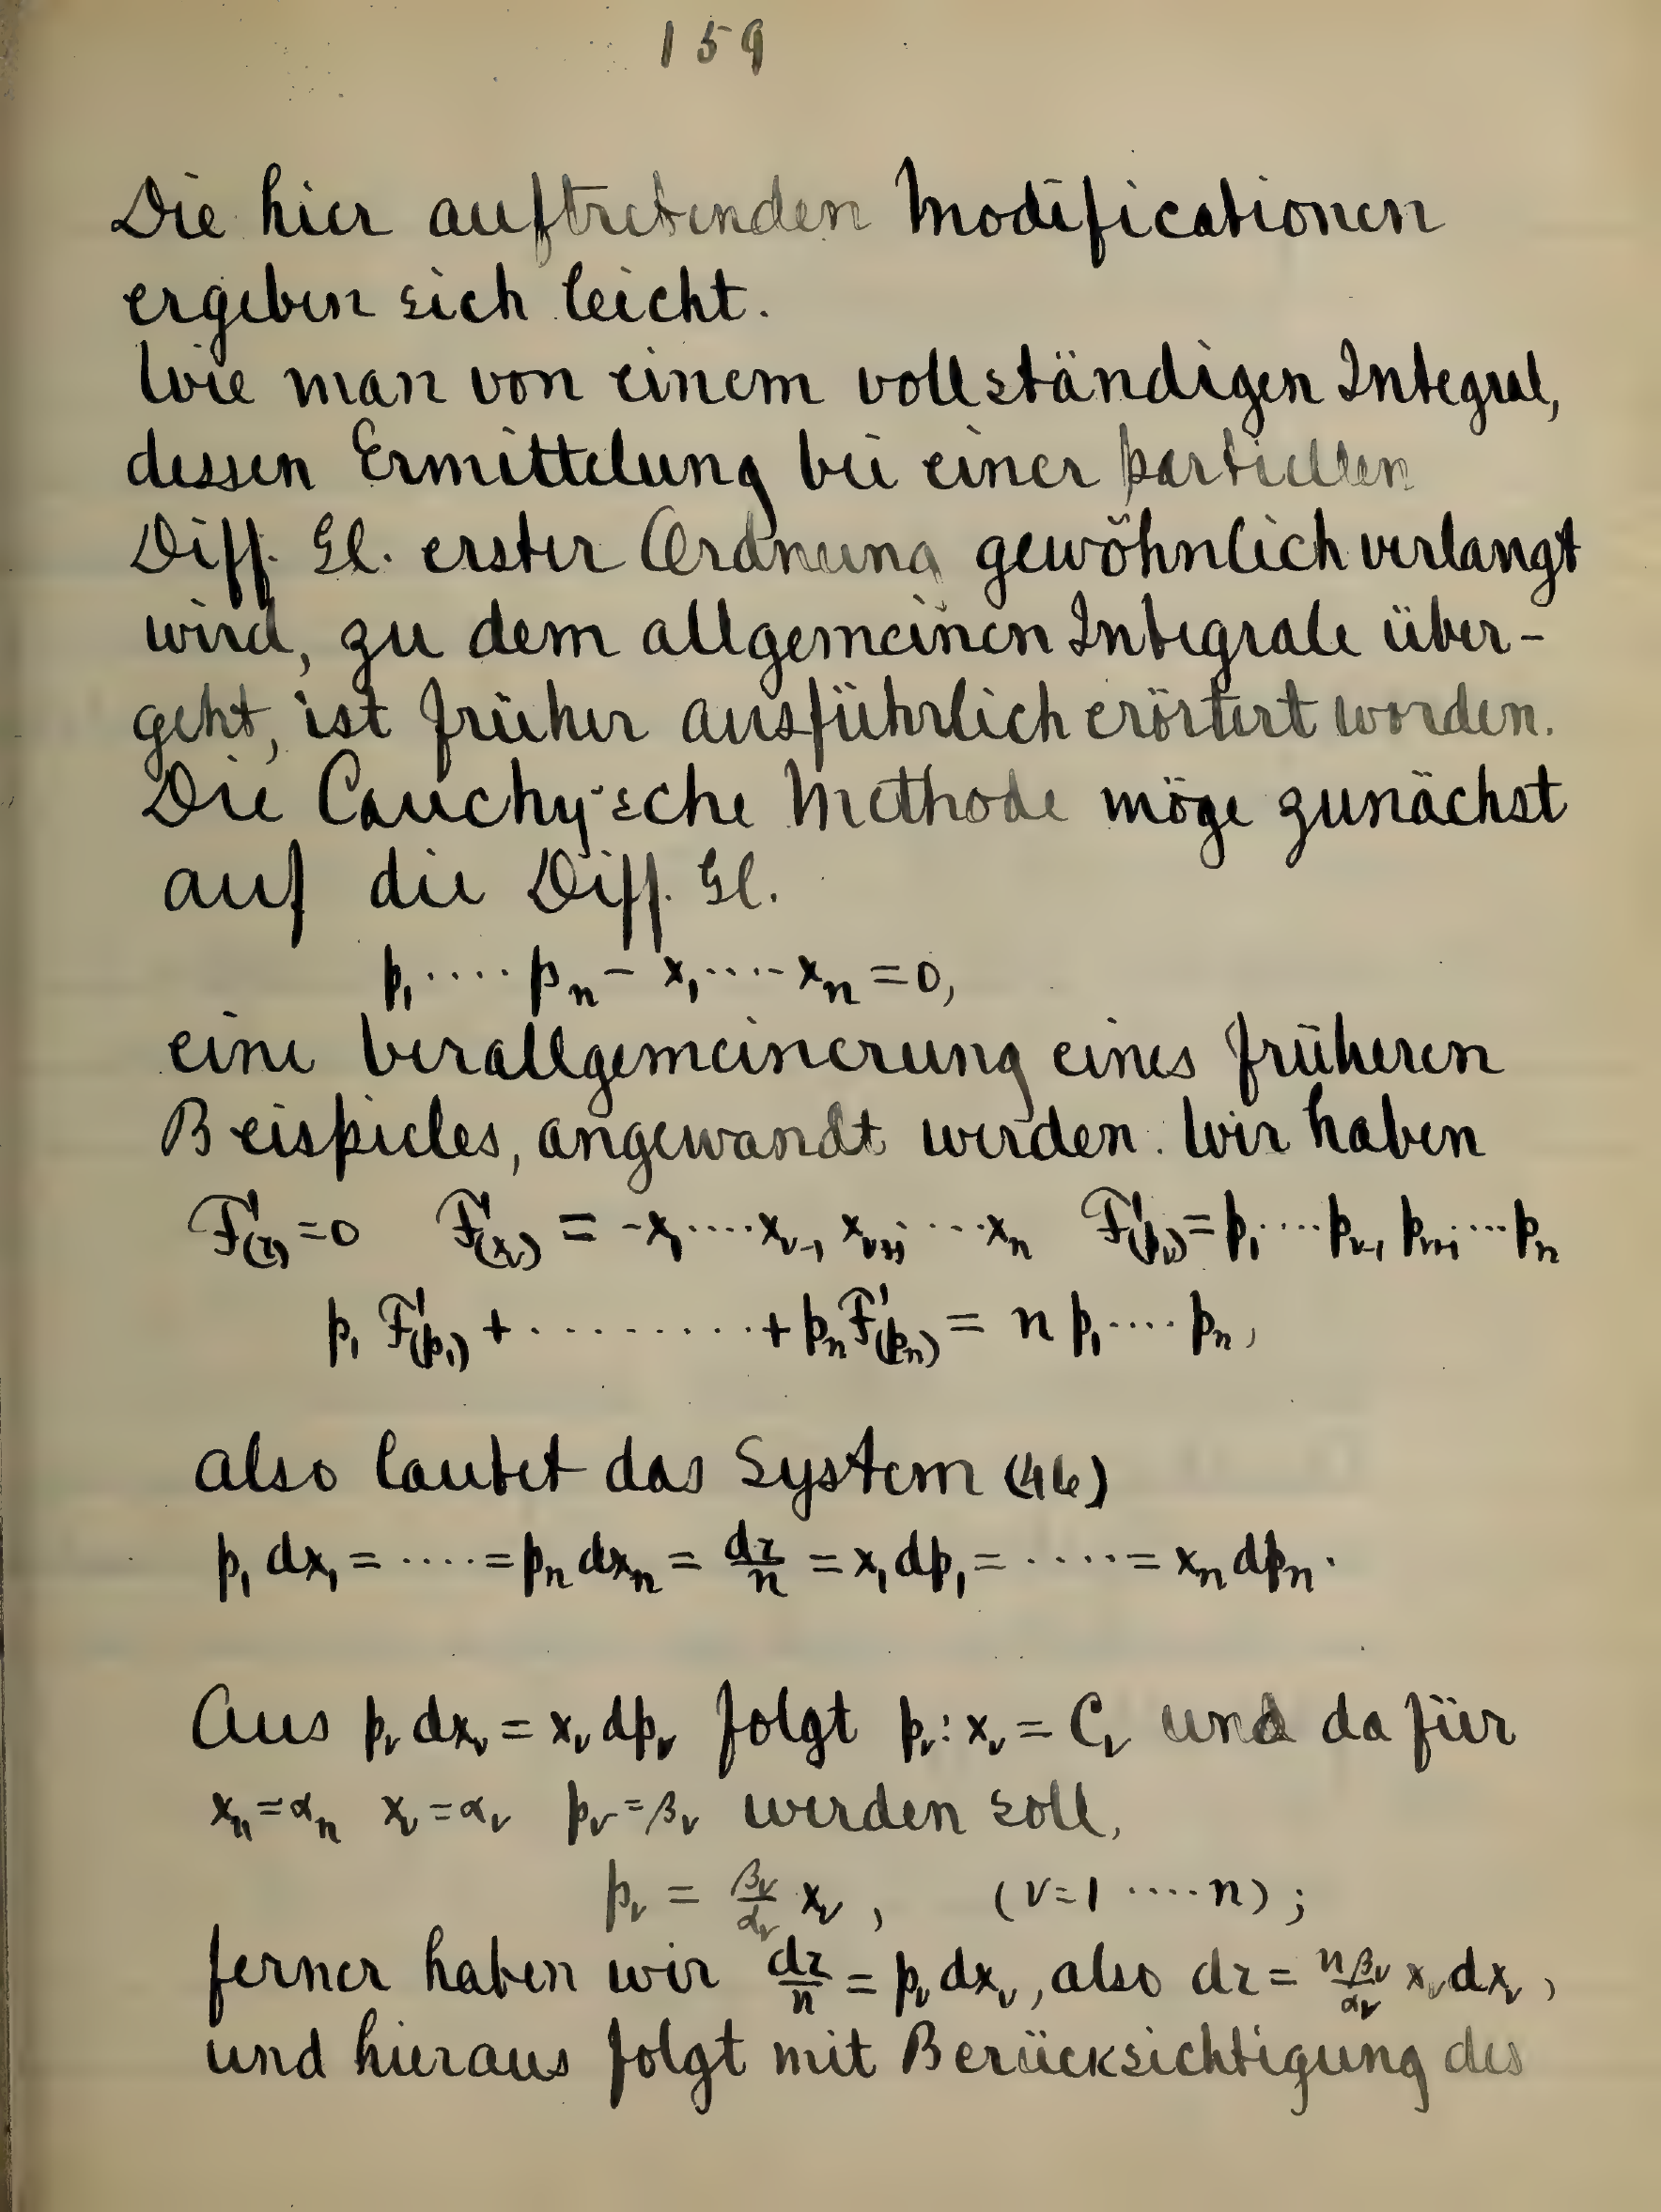 159
Die hier auftretenden Modificationen
ergeben sich leicht.
Wie man von einem vollständigen Integral,
dessen Ermittelung bei einer partiellen
Diff. Gl. erster Ordnung gewöhnlich verlangt
wird, zu dem allgemeinen Integrale über-
geht, ist früher ausführlich erörtert worden.
Die Cauchy'sche Methode möge zunächst
auf die Diff. Gl.
p₁ ···· pₙ − x₁ ···· xₙ = 0,
eine Verallgemeinerung eines früheren
Beispieles, angewandt werden. Wir haben
F'(z) = 0 F'(xᵥ) = −x₁ ···· xᵥ₋₁ xᵥ₊₁ ···· xₙ F'(pᵥ) = p₁ ···· pᵥ₋₁ pᵥ₊₁ ···· pₙ
p₁ F'(p₁) + ········· + pₙ F'(pₙ) = n p₁ ···· pₙ,
also lautet das System (46)
p₁ dx₁ = ···· = pₙ dxₙ = dz/n = x₁ dp₁ = ····· = xₙ dpₙ.
Aus pᵥ dxᵥ = xᵥ dpᵥ folgt pᵥ : xᵥ = Cᵥ und da für
xₙ = αₙ xᵥ = αᵥ pᵥ = βᵥ werden soll,
pᵥ = βᵥ/αᵥ xᵥ, (ν = 1 ···· n);
ferner haben wir dz/n = pᵥ dxᵥ, also dz = nβᵥ/αᵥ xᵥ dxᵥ,
und hieraus folgt mit Berücksichtigung des